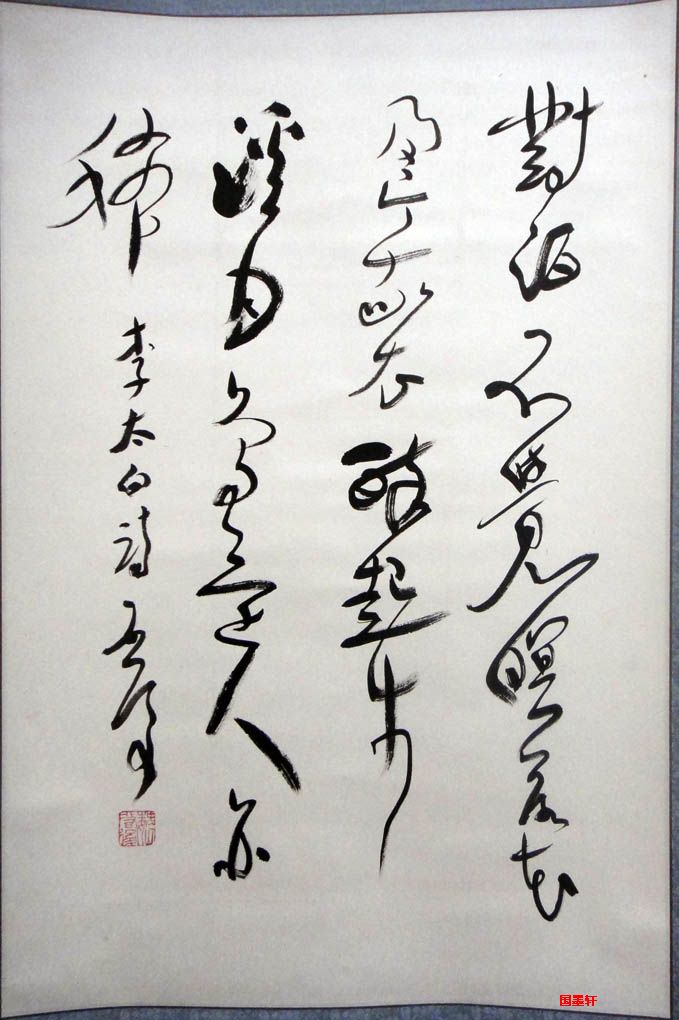 對酒不覺暝落花
盈我衣醉起步
溪月鳥還人亦
稀
李太白詩
国墨轩